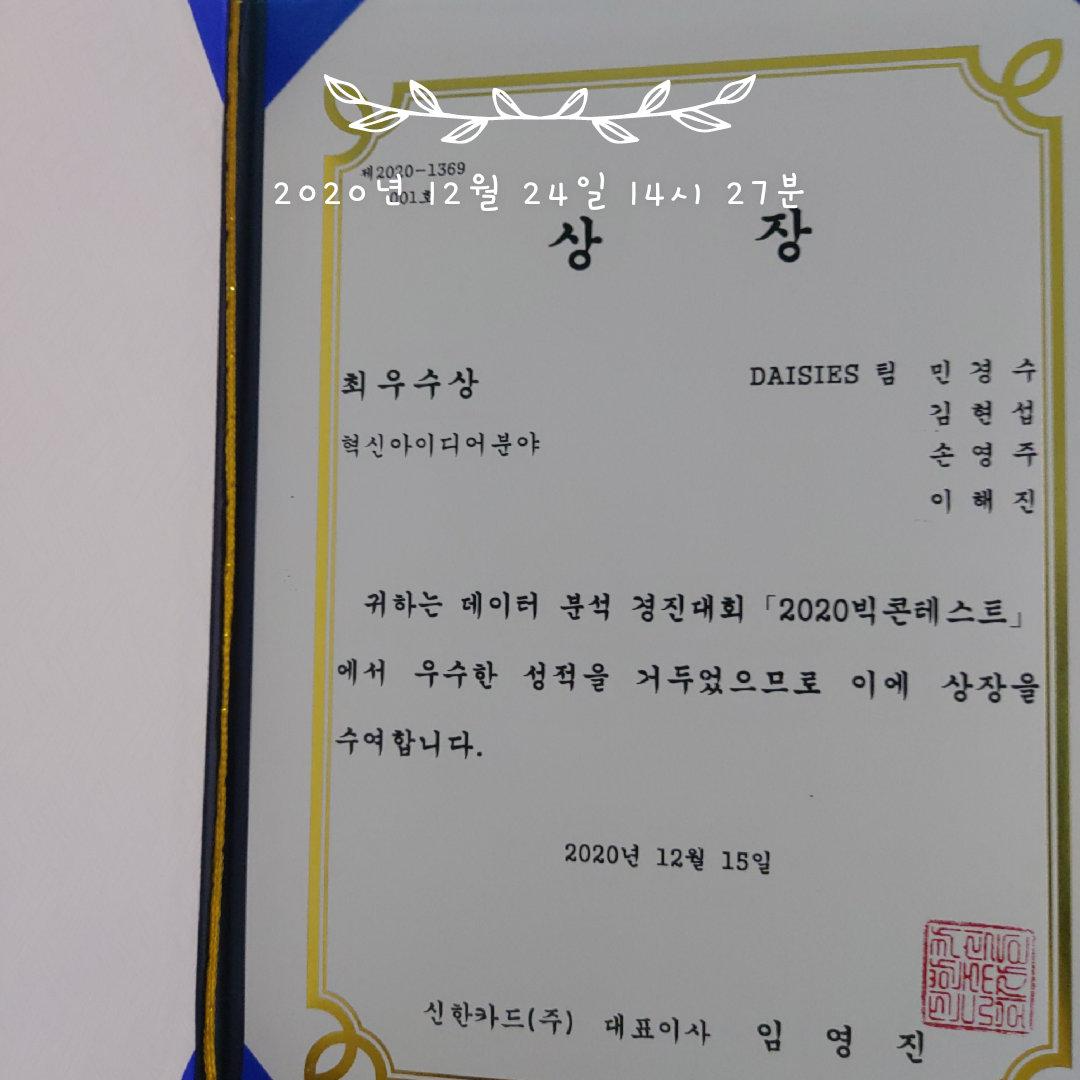 제2020-1369
2020년 12월 24일 14시 27분
001호
상 장
최우수상
DAISIES 팀 민경수
김현섭
손영주
이해진
혁신아이디어분야
귀하는 데이터 분석 경진대회 「2020빅콘테스트」
에서 우수한 성적을 거두었으므로 이에 상장을
수여합니다.
2020년 12월 15일
신한카드(주) 대표이사 임영진